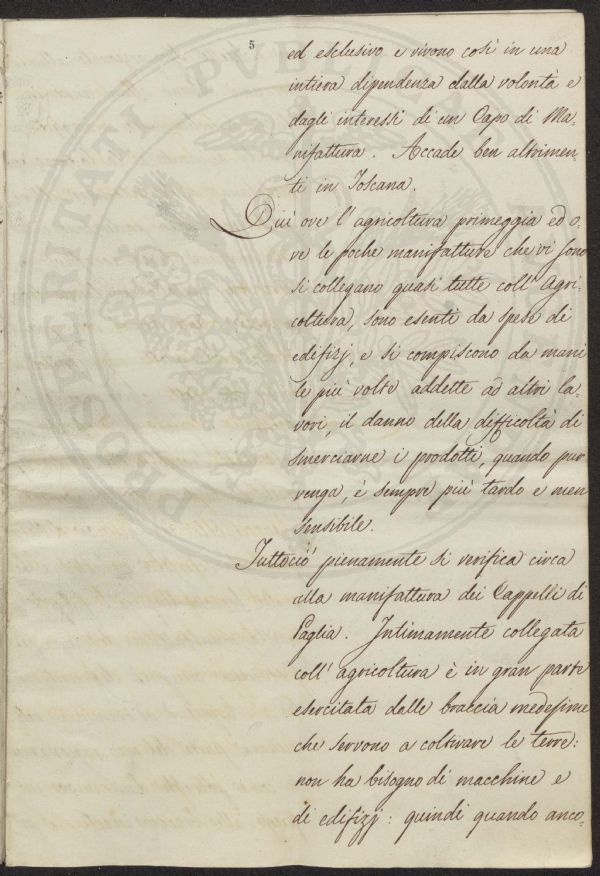 5
ed esclusivo e vivono così in una
intiera dipendenza dalla volontà e
dagli interessi di un Capo di Ma-
nifattura. Accade ben altrimen-
ti in Toscana.
Qui ove l'agricoltura primeggia ed o-
ve le poche manifatture che vi sono
si collegano quasi tutte coll'Agri-
coltura, sono esenti da spese di
edifizj, e si compiscono da mani
le più volte addette ad altri la-
vori, il danno della difficoltà di
smerciarne i prodotti, quando pur
venga, è sempre più tardo e men
sensibile.
Tuttociò pienamente si verifica circa
alla manifattura dei Cappelli di
Paglia. Intimamente collegata
coll'agricoltura è in gran parte
esercitata dalle braccia medesime
che servono a coltivare le terre:
non ha bisogno di macchine e
di edifizj: quindi quando anco-
PROSPERITATI PVBLICAE